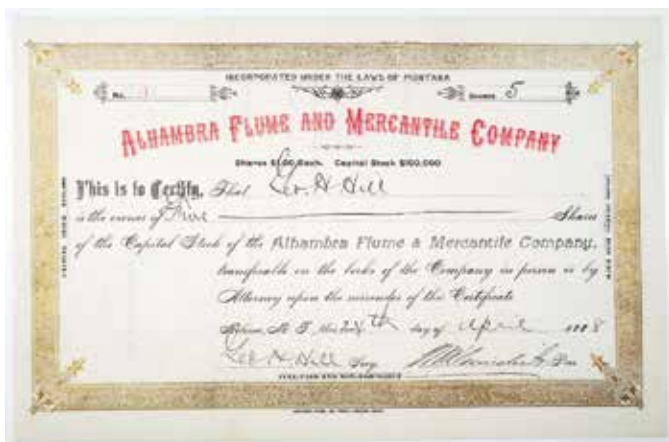 INCORPORATED UNDER THE LAWS OF MONTANA
No. 1 Shares 5
ALHAMBRA FLUME AND MERCANTILE COMPANY
Shares $1.00 Each. Capital Stock $100,000
This is to Certify, That Geo. H Hill
is the owner of Five Shares
of the Capital Stock of the Alhambra Flume & Mercantile Company,
transferable on the books of the Company in person or by
Attorney upon the surrender of this Certificate
M. T., this day of April 8
Geo H Hill Secy. Pres
FULL PAID AND NON-ASSESSABLE